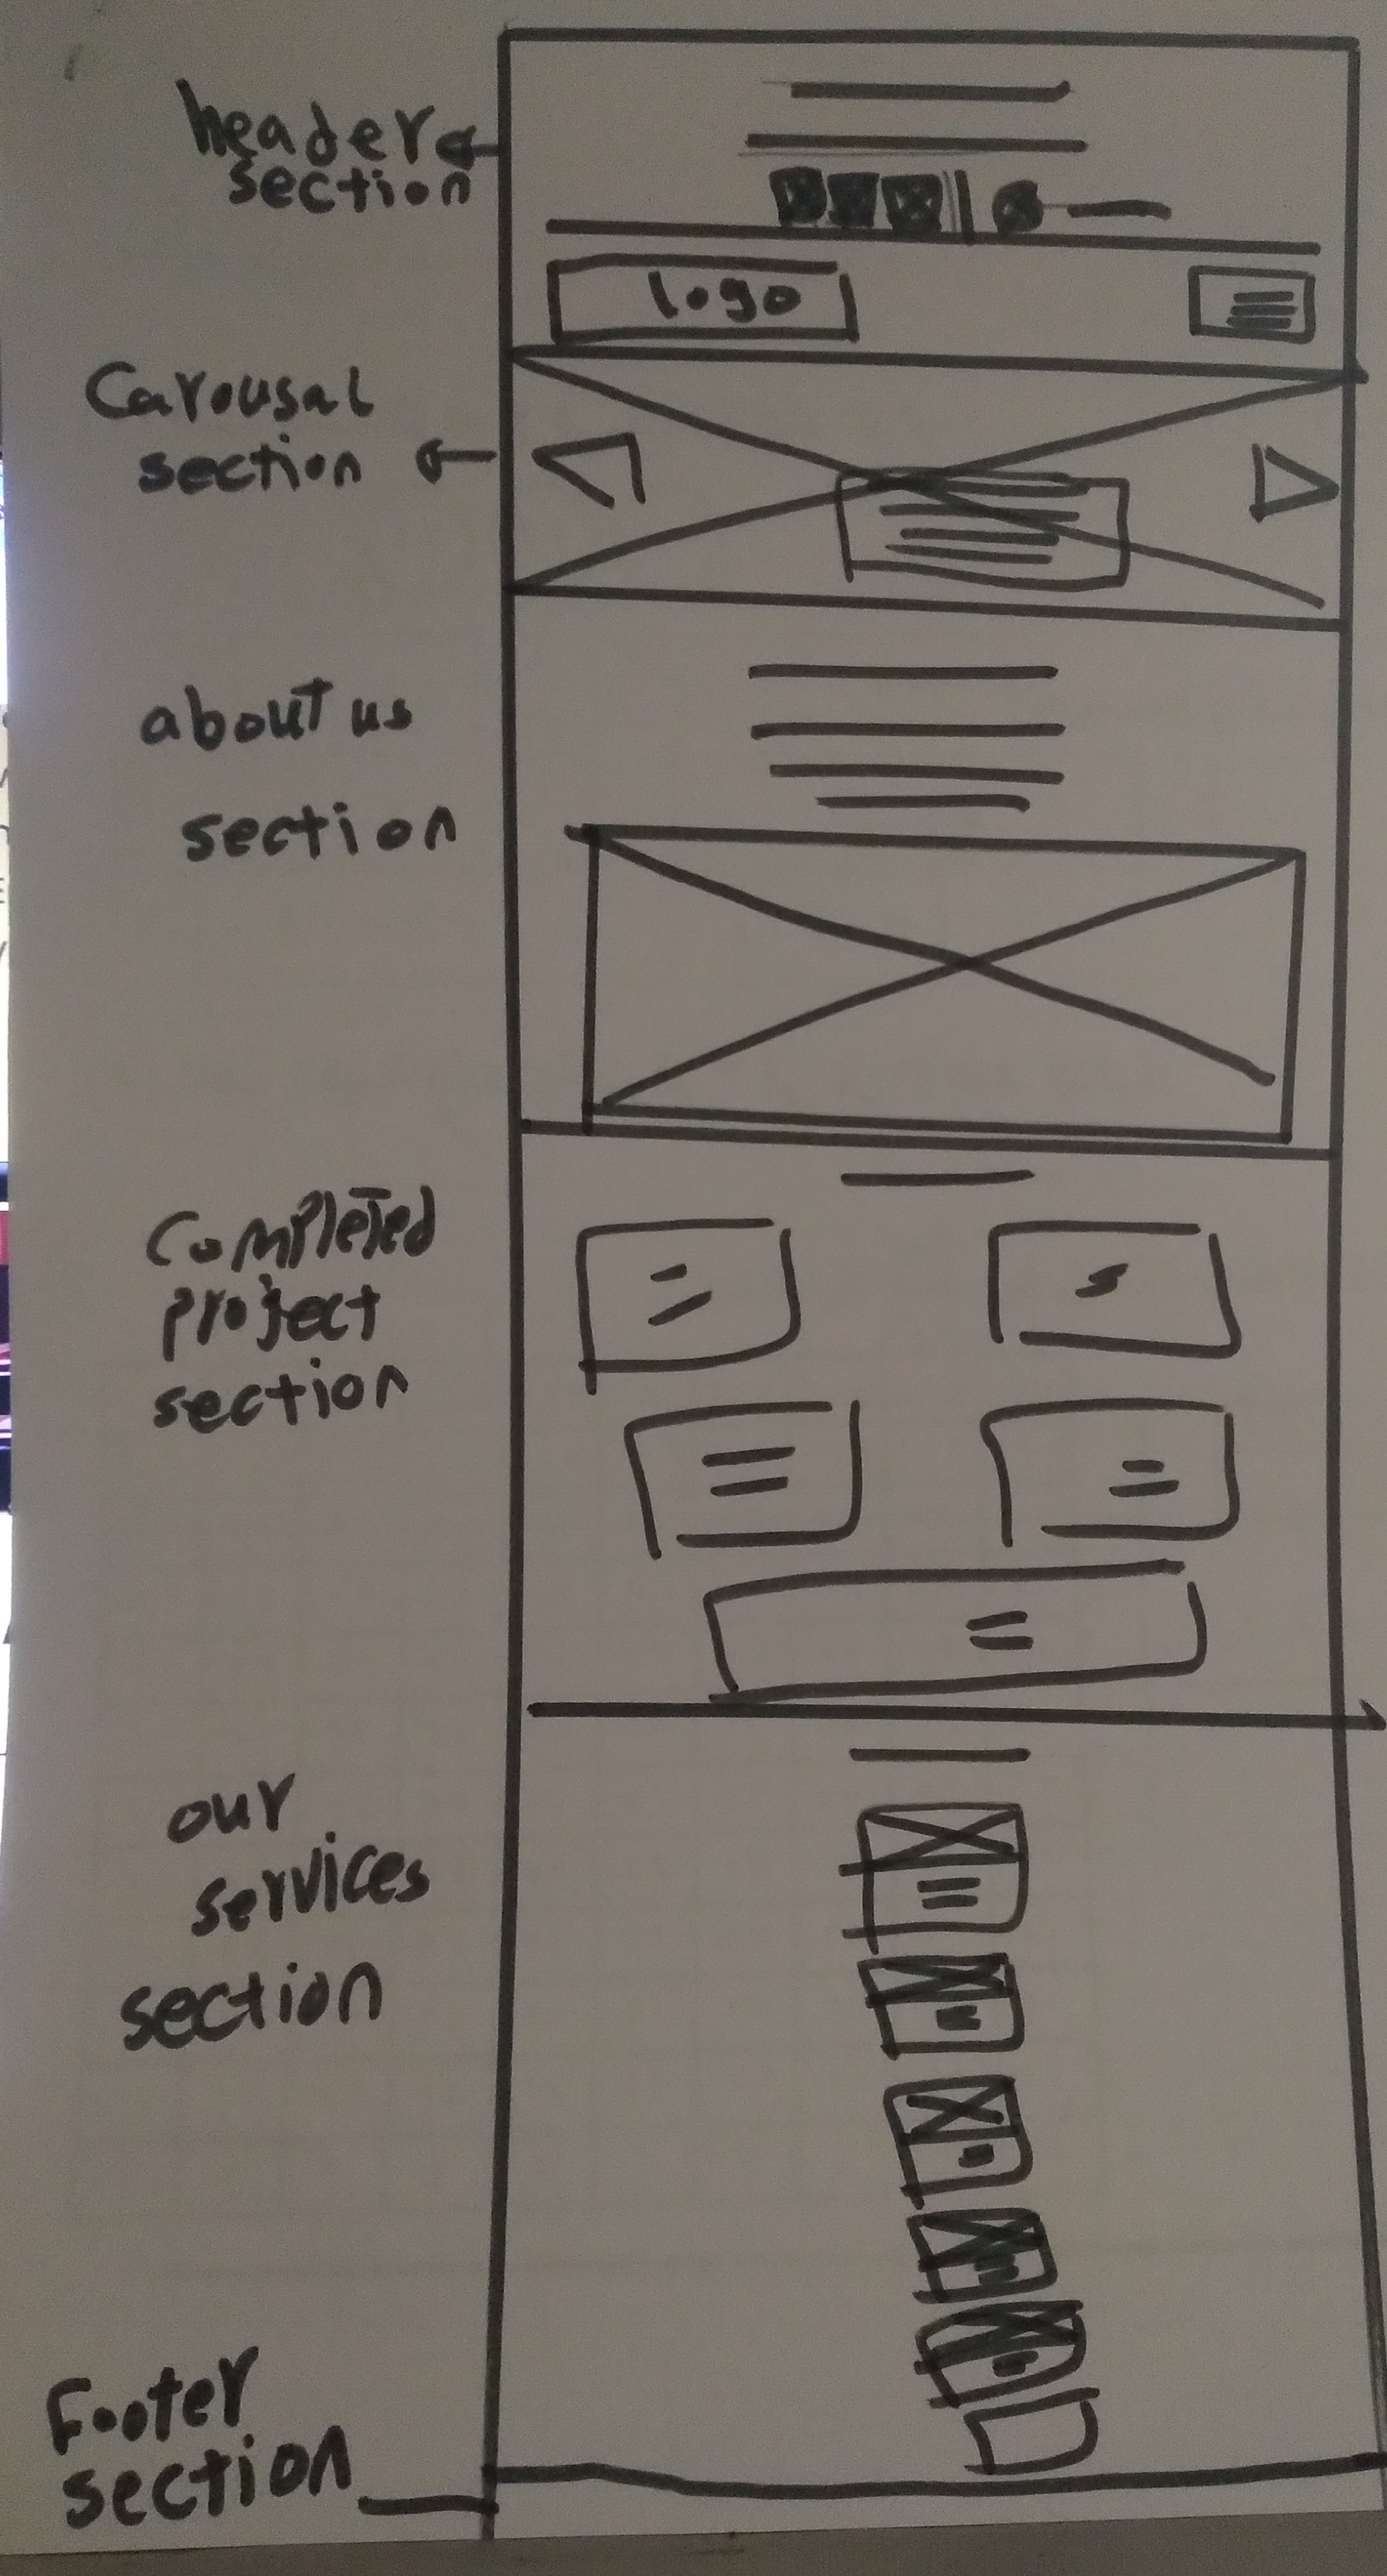 header
section
logo
Carousal
section
about us
section
Completed
project
section
our
services
section
Footer
section